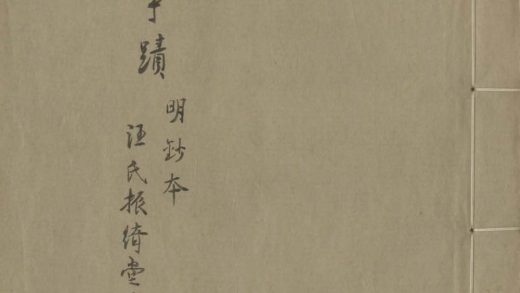 蹟
明鈔本
汪氏振綺堂